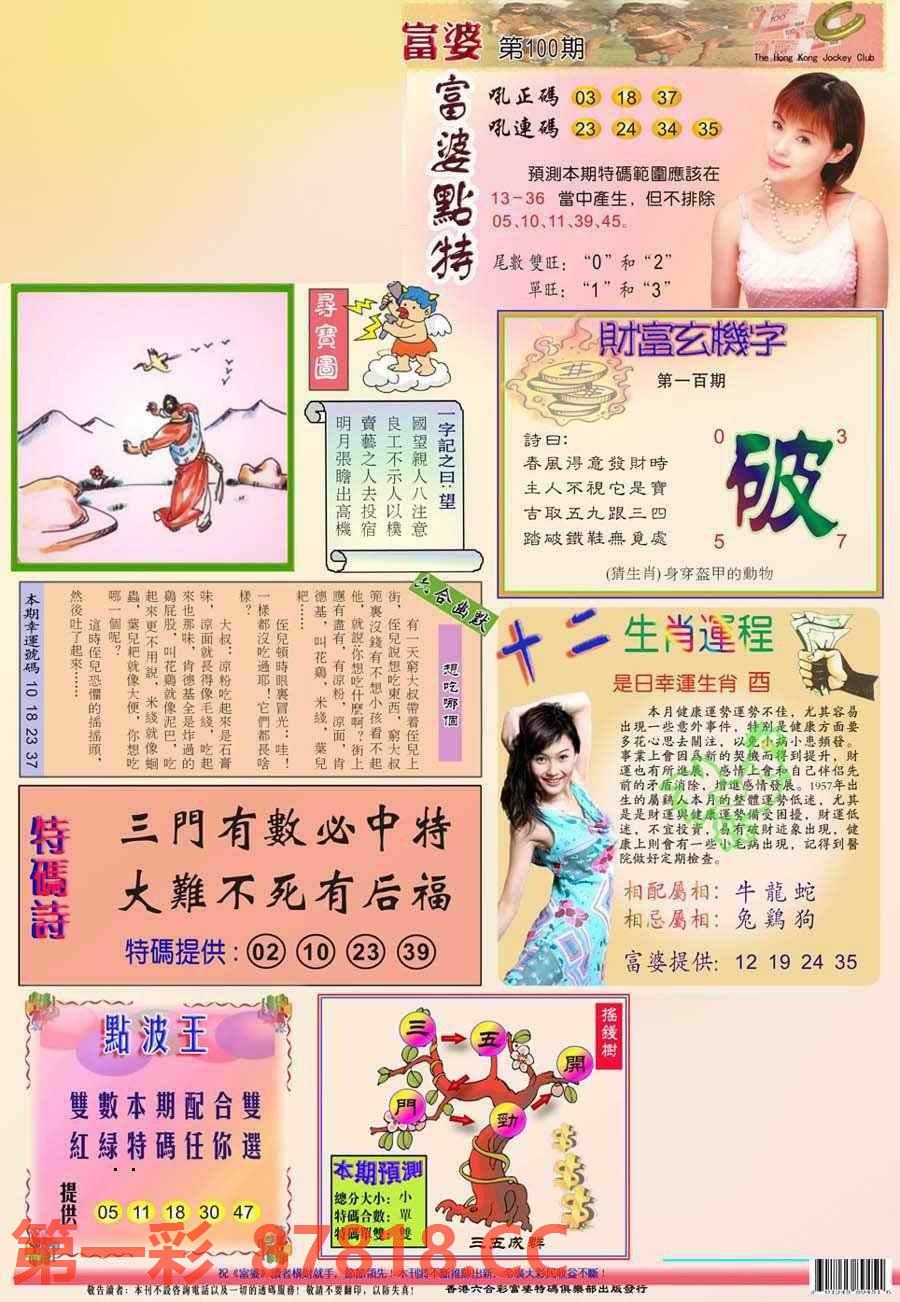 富婆 第100期
The Hong Kong Jockey Club
富婆點特
吼正碼 03 18 37
吼連碼 23 24 34 35
預測本期特碼範圍應該在
13－36 當中產生，但不排除
05、10、11、39、45。
尾數雙旺：“0”和“2”
單旺：“1”和“3”
尋寶圖
一字記之曰：望
國望親人八注意
良工不示人以樸
賣藝之人去投宿
明月張瞻出高機
財富玄機字
第一百期
詩曰：
春風得意發財時
主人不視它是寶
吉取五九跟三四
踏破鐵鞋無覓處
0 3
破
5 7
(猜生肖)身穿盔甲的動物
六合幽默
想吃哪個
有一天窮大叔帶着侄兒上
街，侄兒說想吃東西，窮大叔
範裏沒錢有不想小孩看不起
他，就説你想吃什麼啊？街上
應有盡有，有涼粉，涼面，肯
德基，叫花鷄，米綫，葉兒
粑……
侄兒頓時眼裏冒光：哇！
一樣都沒吃過耶！它們都長啥
樣？
大叔：涼粉吃起來是石膏
味，涼面就長得像毛綫，吃起
來也那味，肯德基全是炸過的
鷄屁股，叫花鷄就像泥巴，吃
起來更不用說，米綫就像蛔
蟲，葉兒粑就像大便，你想吃
哪一個呢？
這時侄兒恐懼的搖搖頭，
然後吐了起來……
本期幸運號碼 10 18 23 37
十二生肖運程
是日幸運生肖 酉
本月健康運勢運勢不佳，尤其容易
出現一些意外事件，特別是健康方面要
多花心思去關注，以免小病小患頻發。
事業上會因為新的契機而得到提升，財
運也有所進展，感情上會和自己伴侶先
前的矛盾消除，增進感情發展。1957年出
生的屬鷄人本月的整體運勢低迷，尤其
是是財運與健康運勢備受困擾，財運低
迷，不宜投資，易有破財迹象出現，健
康上則會有一些小毛病出現，記得到醫
院做好定期檢查。
相配屬相：牛 龍 蛇
相忌屬相：兔 鷄 狗
富婆提供：12 19 24 35
特碼詩
三門有數必中特
大難不死有后福
特碼提供：02 10 23 39
點波王
雙數本期配合雙
紅綠特碼任你選
提供 05 11 18 30 47
搖錢樹
三 五 開
門 勁
本期預測
總分大小：小
特碼合數：單
特碼單雙：雙
三五成群
第一彩 87818.CC
祝《富婆》讀者橫財就手，節節領先！本刊將不斷推陳出新，令廣大彩民收益不斷！
敬告讀者：本刊不設咨詢電話以及一切的透碼服務！敬請不要翻印，以防失真！ 香港六合彩富婆特碼俱樂部出版發行